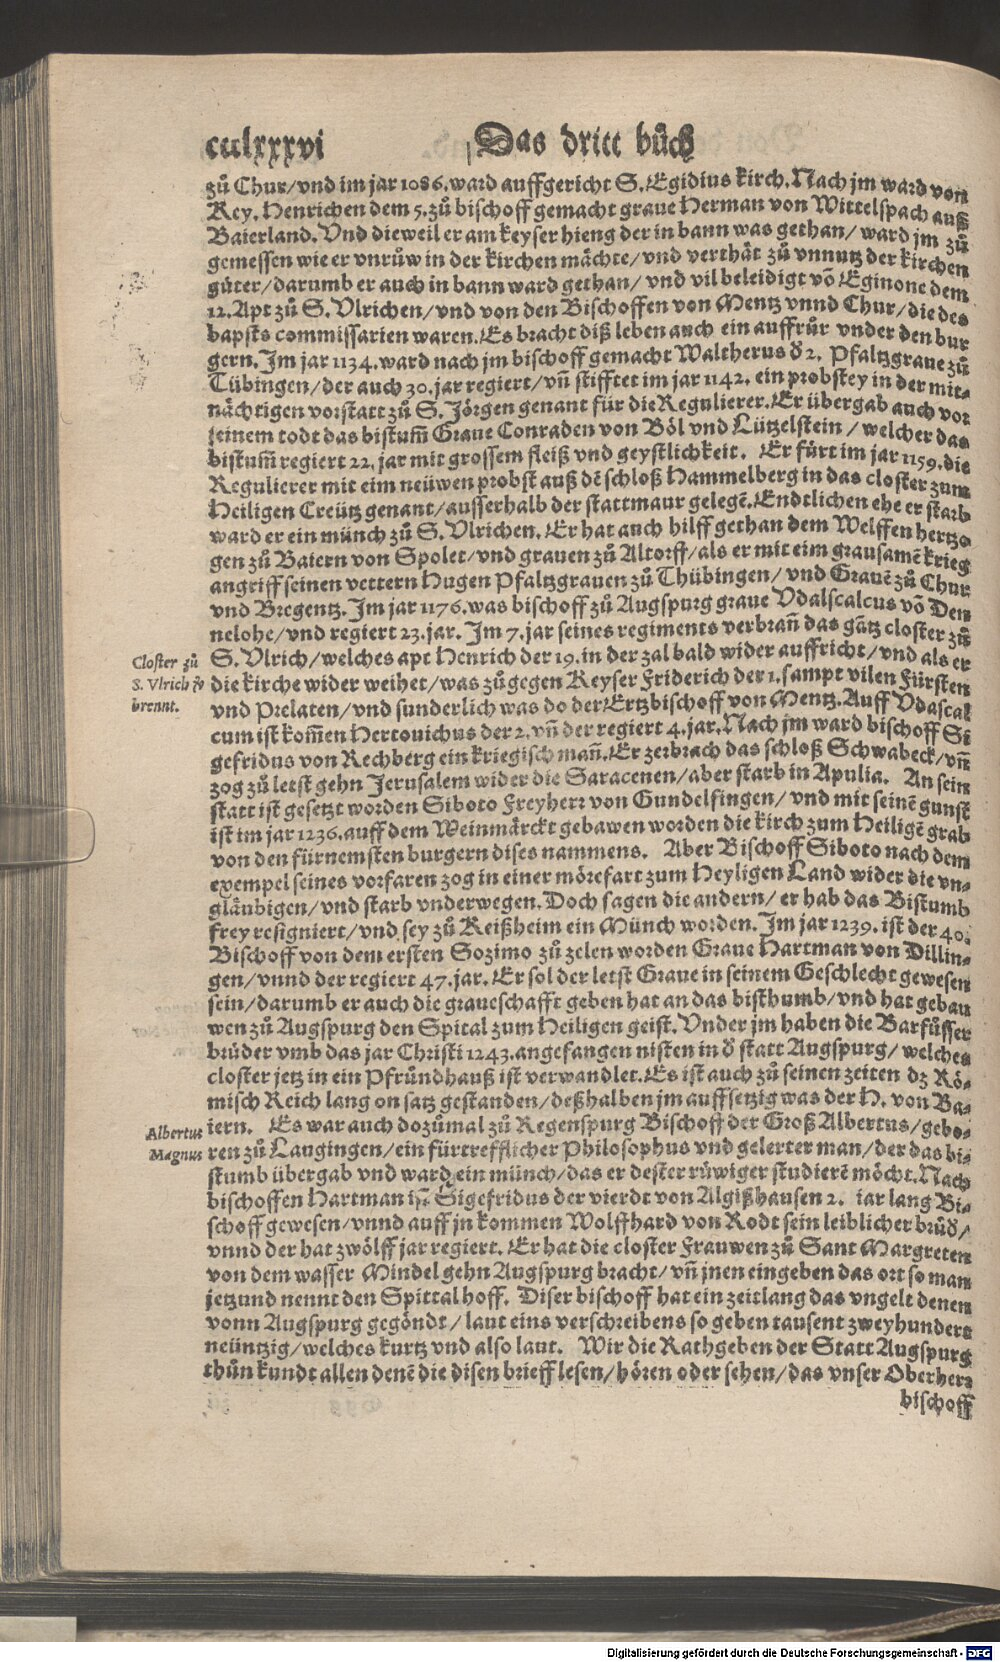 cclxxxvi Das dritt bůch
zů Chur/vnd im jar 1086.ward auffgericht S.Egidius kirch.Nach jm ward von
Key.Henrichen dem 5.zů bischoff gemacht graue Herman von Wittelspach auß
Baierland.Vnd dieweil er am keyser hieng der in bann was gethan/ward jm zů
gemessen wie er vnrůw in der kirchen mächte/vnd verthåt zů vnnutz der kirchen
gůter/darumb er auch in bann ward gethan/vnd vil beleidigt võ Eginone dem
12.Apt zů S.Vlrichen/vnd von den Bischoffen von Mentz vnnd Chur/die des
bapsts commissarien waren.Es bracht diß leben auch ein auffrůr vnder den bur
gern.Im jar 1134.ward nach jm bischoff gemacht Waltherus d̕ 2. Pfaltzgraue zů
Tübingen/der auch 30.jar regiert/vñ stifftet im jar 1142. ein probstey in der mit⸗
nächtigen vorstatt zů S.Jörgen genant für die Regulierer.Er übergab auch vor
seinem todt das bistum̃ Graue Conraden von Böl vnd Lützelstein/welcher das
bistum̃ regiert 22.jar mit grossem fleiß vnd geystlichkeit. Er fürt im jar 1159.die
Regulierer mit eim neüwen probst auß dẽ schloß Hammelberg in das closter zum
Heiligen Creütz genant/ausserhalb der stattmaur gelegẽ.Endtlichen ehe er starb
ward er ein münch zů S.Vlrichen. Er hat auch hilff gethan dem Welffen hertzo
gen zů Baiern von Spolet/vnd grauen zů Altorff/als er mit eim grausamẽ krieg
angriff seinen vettern Hugen Pfaltzgrauen zů Thübingen/vnd Grauẽ zů Chur
vnd Bregentz.Im jar 1176.was bischoff zů Augspurg graue Vdalscalcus võ Den
nelohe/vnd regiert 23.jar. Im 7.jar seines regiments verbrañ das gãtz closter zů
Closter zů
S. Vlrich v̕
brennt.
S.Vlrich/welches apt Henrich der 19.in der zal bald wider auffricht/vnd als er
die kirche wider weihet/was zůgegen Keyser Friderich der 1.sampt vilen Fürsten
vnd Prelaten/vnd sunderlich was do der Ertzbischoff von Mentz.Auff Vdascal
cum ist kom̃en Hertouichus der 2.vñ der regiert 4.jar.Nach jm ward bischoff Si
gefridus von Rechberg ein kriegisch mañ.Er zerbrach das schloß Schwabeck/vñ
zog zů letst gehn Jerusalem wider die Saracenen/aber starb in Apulia. An sein
statt ist gesetzt worden Siboto Freyherr von Gundelfingen/vnd mit seinẽ gunst
ist im jar 1236.auff dem Weinmärckt gebawen worden die kirch zum Heiligẽ grab
von den fürnemsten burgern dises nammens. Aber Bischoff Siboto nach dem
exempel seines vorfaren zog in einer mörefart zum Heyligen Land wider die vn⸗
gläubigen/vnd starb vnderwegen.Doch sagen die andern/er hab das Bistumb
frey resigniert/vnd sey zů Keißheim ein Münch worden.Im jar 1239.ist der 40.
Bischoff von dem ersten Sozimo zů zelen worden Graue Hartman von Dillin⸗
gen/vnnd der regiert 47.jar. Er sol der letst Graue in seinem Geschlecht gewesen
sein/darumb er auch die graueschafft geben hat an das bisthumb/vnd hat gebau
wen zů Augspurg den Spital zum Heiligen geist.Vnder jm haben die Barfůsser
brüder vmb das jar Christi 1243.angefangen nisten in d̕ statt Augspurg/welches
closter jetz in ein Pfründhauß ist verwandlet.Es ist auch zů seinen zeiten dz Rö⸗
misch Reich lang on satz gestanden/deßhalben jm auffsetzig was der H. von Ba⸗
Albertus
Magnus
iern. Es war auch dozůmal zů Regenspurg Bischoff der Groß Albertus/gebo⸗
ren zů Laugingen/ein fürtrefflicher Philosophus vnd gelerter man/der das bi⸗
stumb übergab vnd ward ein münch/das er dester růwiger studierẽ möcht.Nach
bischoffen Hartman ist Sigefridus der vierdt von Algißhausen 2. iar lang Bi⸗
schoff gewesen/vnnd auff jn kommen Wolffhard von Rodt sein leiblicher brůd̕/
vnnd der hat zwölff jar regiert. Er hat die closter Frauwen zů Sant Margreten
von dem wasser Mindel gehn Augspurg bracht/vñ jnen eingeben das ort so man
jetzund nennt den Spittal hoff. Diser bischoff hat ein zeitlang das vngelt denen
vonn Augspurg gegöndt/laut eins verschreibens so geben tausent zweyhundert
neüntzig/welches kurtz vnd also laut. Wir die Rathgeben der Statt Augspurg
thůn kundt allen denẽ die disen brieff lesen/hören oder sehen/das vnser Oberherr
bischoff
Digitalisierung gefördert durch die Deutsche Forschungsgemeinschaft - DFG